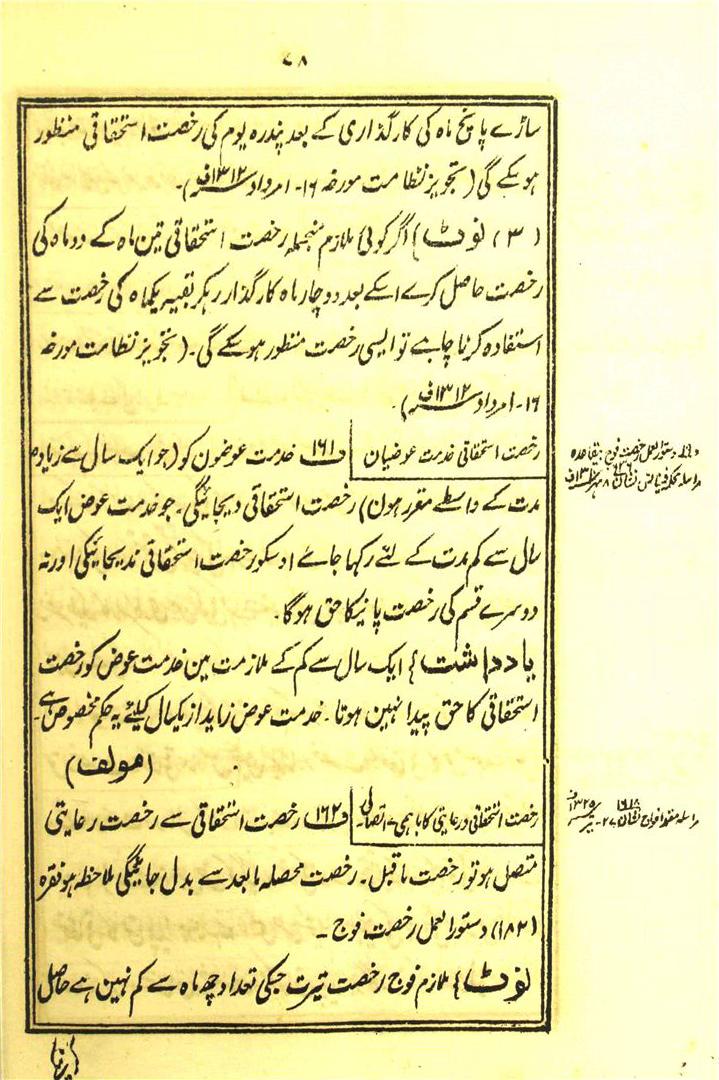 ۷۸
ساڑے پانچ ماہ کی کارگذاری کے بعد پندرہ یوم کی رخصت استحقاقی منظور
ہوسکے گی (تجویز نظامت مورخہ ۱۶۔ امرداد ۱۳۱۲ف)۔
(۳) نوٹ} اگر کوئی ملازم منجملہ رخصت استحقاقی تین ماہ کے دو ماہ کی
رخصت حاصل کرے اسکے بعد دو چار ماہ کارگذار رہکر بقیہ یکماہ کی رخصت سے
استفادہ کرنا چاہے تو ایسی رخصت منظور ہوسکے گی۔ (تجویز نظامت مورخہ
۱۶۔ امرداد ۱۳۱۲ف)۔
رخصت استحقاقی خدمت عوضیان
ف ۱۶۱ خدمت عوضون کو (جو ایک سال سے زیادہ
مدت کے واسطے مقرر ہون) رخصت استحقاقی دیجائیگی۔ جو خدمت عوض ایک
سال سے کم مدت کے لئے رکہا جائے اوسکو رخصت استحقاقی ندیجائیگی اور نہ
دوسرے قسم کی رخصت پانیکا حق ہوگا۔
یادداشت} ایک سال سے کم کے ملازمت مین خدمت عوض کو رخصت
استحقاقی کا حق پیدا نہین ہوتا۔ خدمت عوض زاید از یکسال کیلئے یہ حکم مخصوص ہے۔
(مولف)
رخصت استحقاقی و رعایتی کا باہمی اتصال
ف ۱۶۲ رخصت استحقاقی سے رخصت رعایتی
متصل ہو تو رخصت ماقبل۔ رخصت محصلہ مابعد سے بدل جائیگی ملاحظہ ہو فقرہ
(۱۸۲) دستور العمل رخصت فوج ۔
نوٹ} ملازم فوج رخصت تیرت جسکی تعداد چھ ماہ سے کم نہین ہے حاصل
دستور العمل رخصت فوج
مراسلہ محکمہ فینانس نشان
مراسلہ افواج نشان ۱۶۱۸